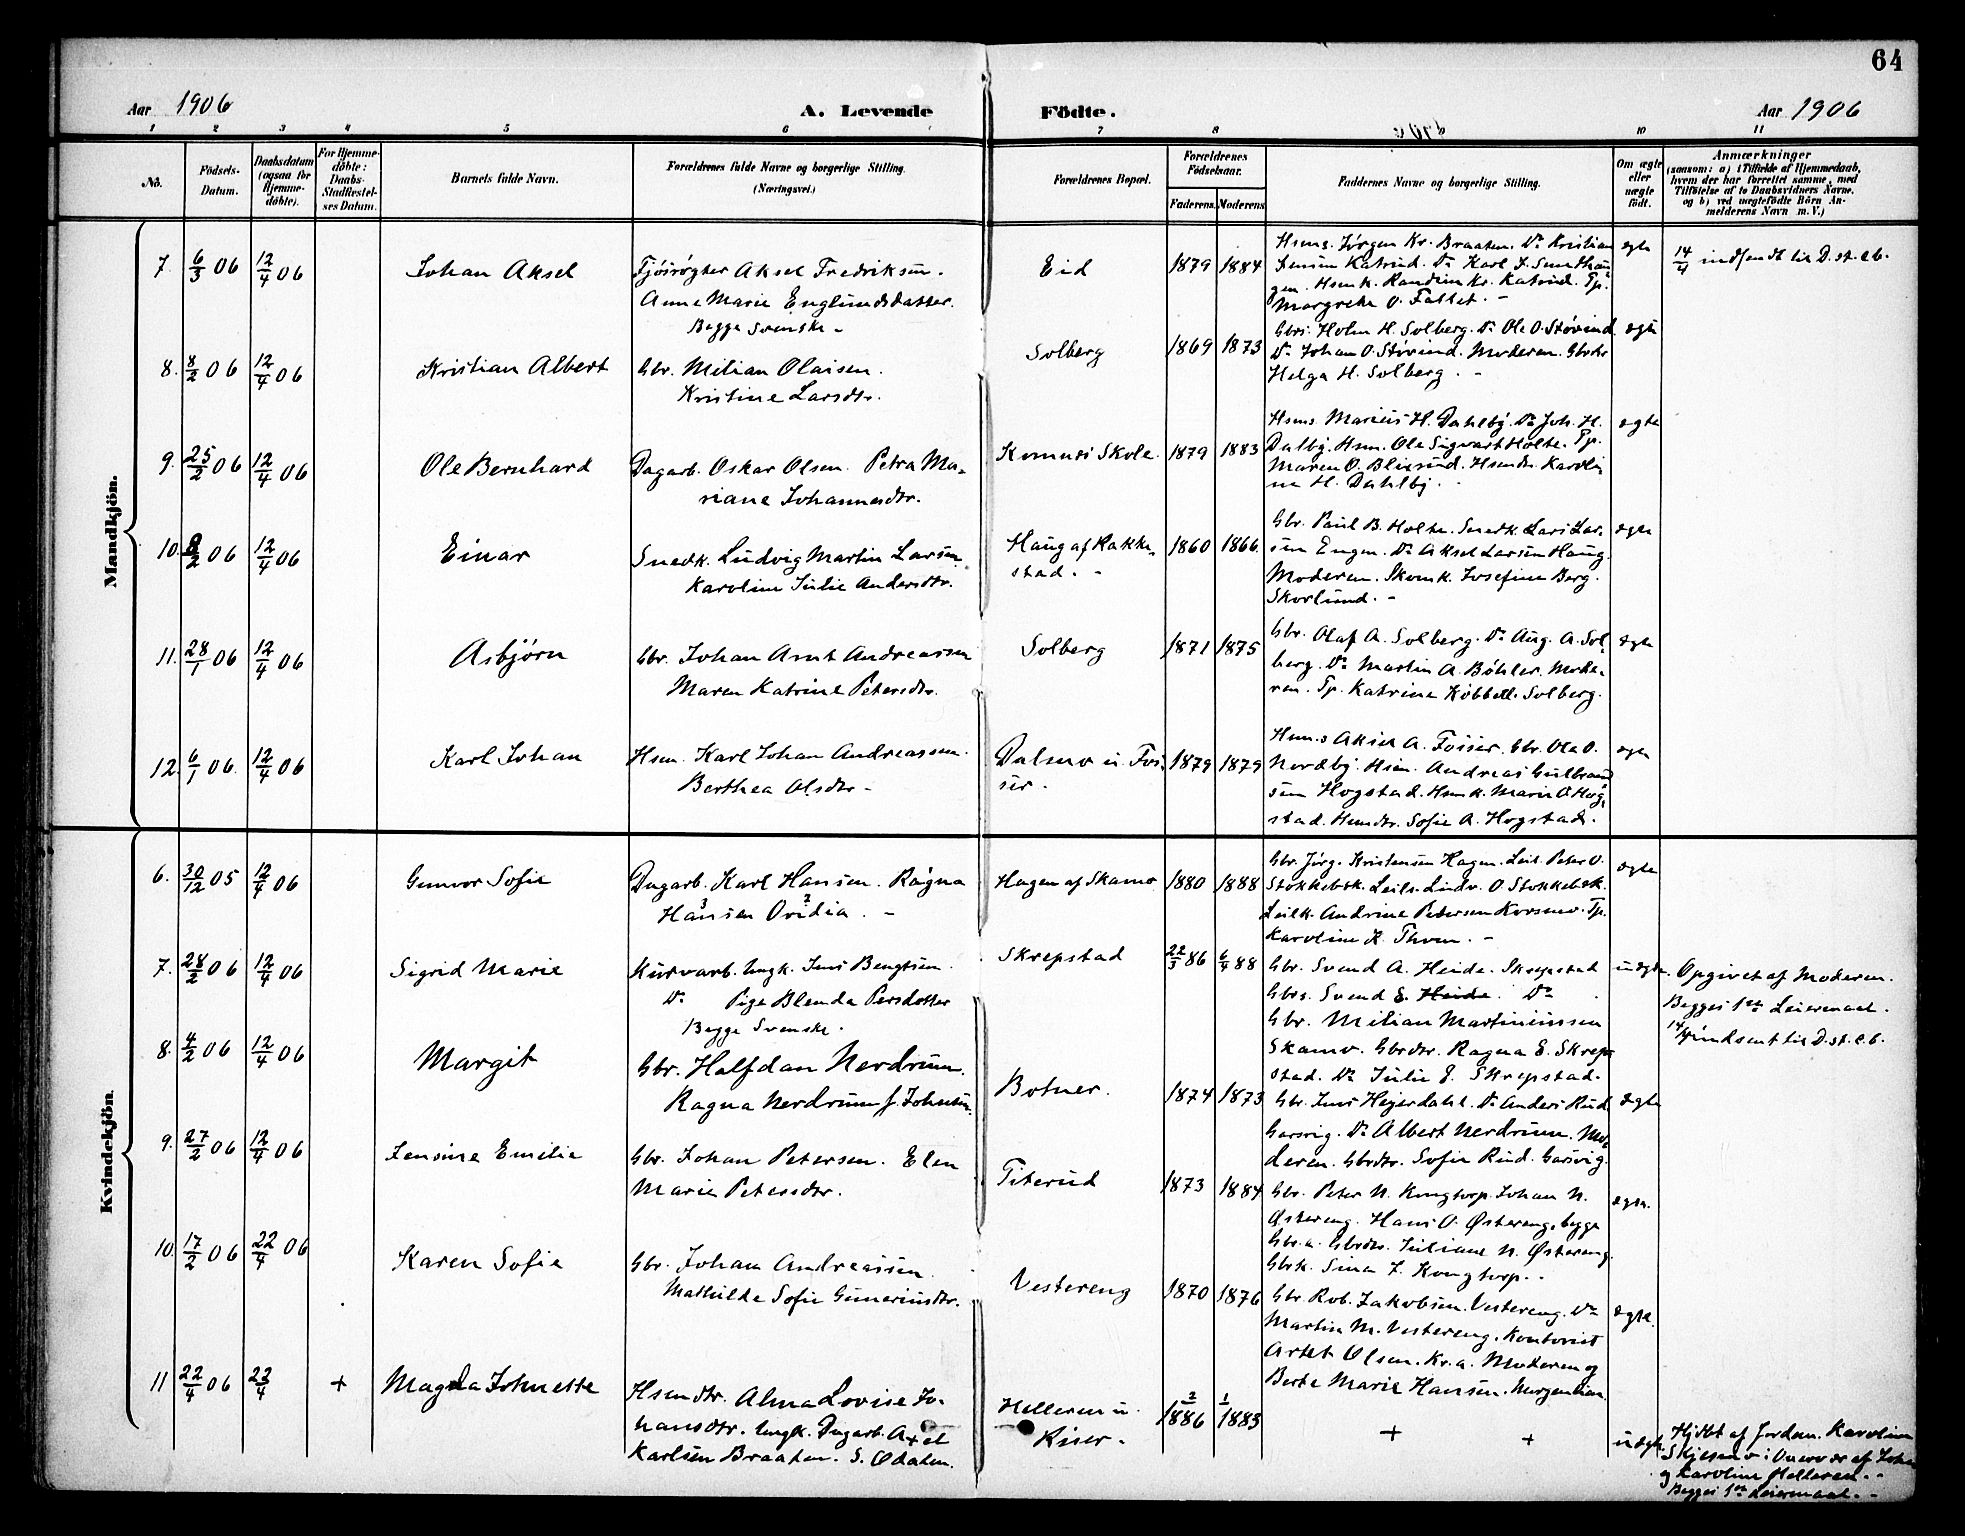 64
Aar 1906 A. Levende Födte. Aar 1906
1 2 3 4 5 6 7 8 9 10 11
No.
Födsels-
Datum.
Daabsdatum
(ogsaa for
Hjemme-
döbte).
For Hjemme-
döbte:
Daabs-
Stadfæstel-
ses Datum.
Barnets fulde Navn.
Forældrenes fulde Navne og borgerlige Stilling.
(Næringsvei.)
Forældrenes Bopæl.
Forældrenes
Födselsaar.
Faderens. Moderens.
Faddernes Navne og borgerlige Stilling.
Om ægte
eller
uægte
födt.
Anmærkninger
(saasom: a) i Tilfælde af Hjemmedaab,
hvem der har forrettet samme, med
Tilföielse af to Daabsvidners Navne,
og b) ved uægtefödte Börn An-
melderens Navn m. V.)
Mandkjön.
7. 6/3 06 12/4 06 Johan Aksel
Fjøsrøgter Aksel Fredriksen.
Anne Marie Englundsdatter.
Begge Svenske -
Eid 1879 1884
Hsms. Jørgen Kr. Braaten. Do Kristian
Jensen Katrud. Do Karl J. Smedhau-
gen. Hsmk. Randine Kr. Katrud. Tp.
Margrethe O. Fallet. -
ægte
14/4 indsendt til D. st. c. b.
8. 8/2 06 12/4 06 Kristian Albert
Gbr. Milian Olaisen.
Kristine Larsdtr.
Solberg 1869 1873
Gbrs. Holm H. Solberg. Do Ole O. Støvind
Do Johan O. Støvind. Moderen. Gbrdtr
Helga H. Solberg. -
ægte
9. 25/2 06 12/4 06 Ole Bernhard
Dagarb. Oskar Olsen. Petra Ma-
riane Johannesdtr.
Komnes Skole. 1879 1883
Hsms. Marius H. Dahlby. Do Joh. H.
Dalby. Hsm. Ole Sigvart Holte. Tp.
Maren O. Blixrud. Hsmdtr. Karoli-
ne H. Dahlby.
ægte
10. 8/2 06 12/4 06 Einar
Snedk. Ludvig Martin Larsen
Karoline Julie Andersdtr.
Haug af Rakke-
stad. -
1860 1866.
Gbr. Paul B. Holte. Snedk. Lars Lar-
sen Engen. Do Aksel Larsen Haug.
Moderen. Skomk. Josefine Berg.
Skorlund. -
ægte
11. 28/1 06 12/4 06 Asbjørn
Gbr. Johan Arnt Andreassen
Maren Katrine Petersdtr.
Solberg 1871 1875
Gbr. Olaf A. Solberg. Do Aug. A. Sol-
berg. Do Martin A. Bøhler. Mode-
ren. Tp. Katrine Købbell. Solberg.
ægte
12. 6/1 06. 12/4 06 Karl Johan
Hsm. Karl Johan Andreassen.
Berthea Olsdtr -
Dalsmo u. Fos-
ser.
1879 1879
Hsm.s Aksel A. Fosser. Gbr. Ole O.
Nordby. Hsm. Andreas Gulbrand
sen Hogstad. Hsmk. Marie O. Hog-
stad. Hsmdtr. Sofie A. Hogstad.
ægte
Kvindekjön.
6. 30/12 05 12/4 06 Gunvor Sofie
Dagarb. Karl Hansen. Ragna
Hansen Ovidia. -
3 2
Hagen af Skamo 1880 1888
Gbr. Jørg. Kristensen Hagen. Leil. Peter O.
Stokkebæk. Leils. Ludv. O. Stokkebæk.
Leilk. Andrine Petersen Korsmo. Tp.
Karoline K. Thoen. -
ægte
7. 28/2 06 12/4 06 Sigrid Marie
Kurvarb. Ungk. Jens Bengtsen.
Do Pige Blenda Persdotter
Begge Svenske.
Skrepstad 22/3 86 6/4 88
Gbr. Svend A. Heide. Skrepstad
Gbrs. Svend E. Heide. Do
Gbr. Milian Martiniussen
Skamo. Gbrdtr. Ragna E. Skrep-
stad. Do Julie E. Skrepstad.
uægte.
Opgivet af Moderen.
Begges 1ste Leiermaal.
14/4 indsent til D. st. c. b.
8. 4/2 06 12/4 06 Margit
Gbr. Halfdan Nerdrum.
Ragna Nerdrum f. Johnsen.
Botner. 1874 1873
Gbr. Jens Hejerdahl. Do Anders Rud
Garsvig. Do Albert Nerdrum. Mo-
deren. Gbrdtr. Sofie Rud. Garsvig.
ægte
9. 27/2 06 12/4 06 Jensine Emilie
Gbr. Johan Petersen. Elen
Marie Petersdtr.
Titerud 1873 1884
Gbr. Peter N. Kongtorp. Johan N.
Østereng. Hans O. Østereng, begge
Gbr.s. Gbrdtr. Juliane N. Østereng.
Gbrk. Sina J. Kongtorp. -
ægte.
10. 17/2 06 22/4 06 Karen Sofie
Gbr. Johan Andreassen.
Mathilde Sofie Guneriusdtr.
Vestereng 1870 1876
Gbr. Rob. Jakobsen. Vestereng. Do
Martin M. Vestereng. Kontorist
Artet Olsen. Kr.a. Moderen og
Berte Marie Hansen.
ægte.
11 22/4 06 22/4 + Magda Johnette
Hsmdtr. Alma Lovise Jo-
hansdtr. Ungk. Dagarb. Axel
Karlsen Braaten. S. Ødalen.
Helleren u.
Riser. -
2/1886 1/1883
+ +
uægte.
Hjdbt af Jordm. Karoline
Skjesmo i Overvær af Johan
og Karoline Helleren. -
Begges 1ste Leiermaal. -